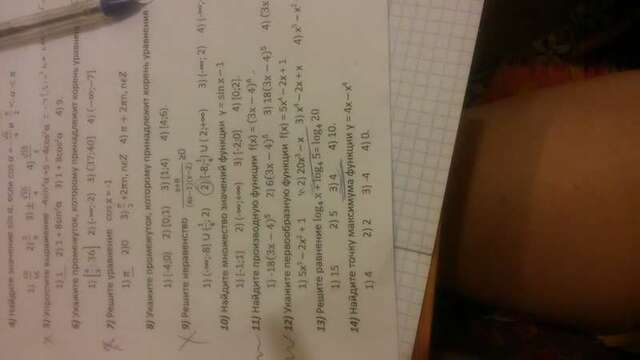 4) Найдите значение sin α, если cos α = − и < α < π
1) 2) 3) ± 4)
5) Упростите выражение -4sin²α +5 – 4cos²α
1) 1 2) 1 + 8sin²α 3) 1 + 8cos²α 4) 9.
6) Укажите промежуток, которому принадлежит корень уравнен
1) 36] 2) (-∞;-2) 3) (17;40] 4) (−∞;−7].
7) Решите уравнение cosx = -1
1) π 2)0 3) π/2 +2πn, n∈Z 4) π + 2πn, n∈Z
8) Укажите промежуток, которому принадлежит корень уравнения
1) [-4;0) 2) [0;1) 3) [1;4) 4) [4;6).
9) Решите неравенство (x+8)/((4x−1)(x−2)) ≥0
1) (-∞;-8] ∪ (1/4; 2) 2) [-8;1/4) ∪ ( 2;+∞) 3) (-∞; 2) 4) (-∞;
10) Найдите множество значений функции y = sin x − 1
1) [-1;1] 2) (-∞;+∞) 3) [-2;0] 4) [0;2].
11) Найдите производную функции f(x) = (3x − 4)⁶ .
1) -18(3x − 4)⁵ 2) 6(3x − 4)⁵ 3) 18(3x − 4)⁵ 4) (3x
12) Укажите первообразную функции f(x) = 5x⁴ − 2x + 1
1) 5x⁵ − 2x² + 1 2) 20x³ − x 3) x⁴ − 2x + x 4) x⁵ − x²
13) Решите равнение log₄ x + log₄ 5= log₄ 20
1) 15 2) 5 3) 4 4) 10.
14) Найдите точку максимума функции y = 4x − x⁴
1) 4 2) 2 3) -4 4) 0.